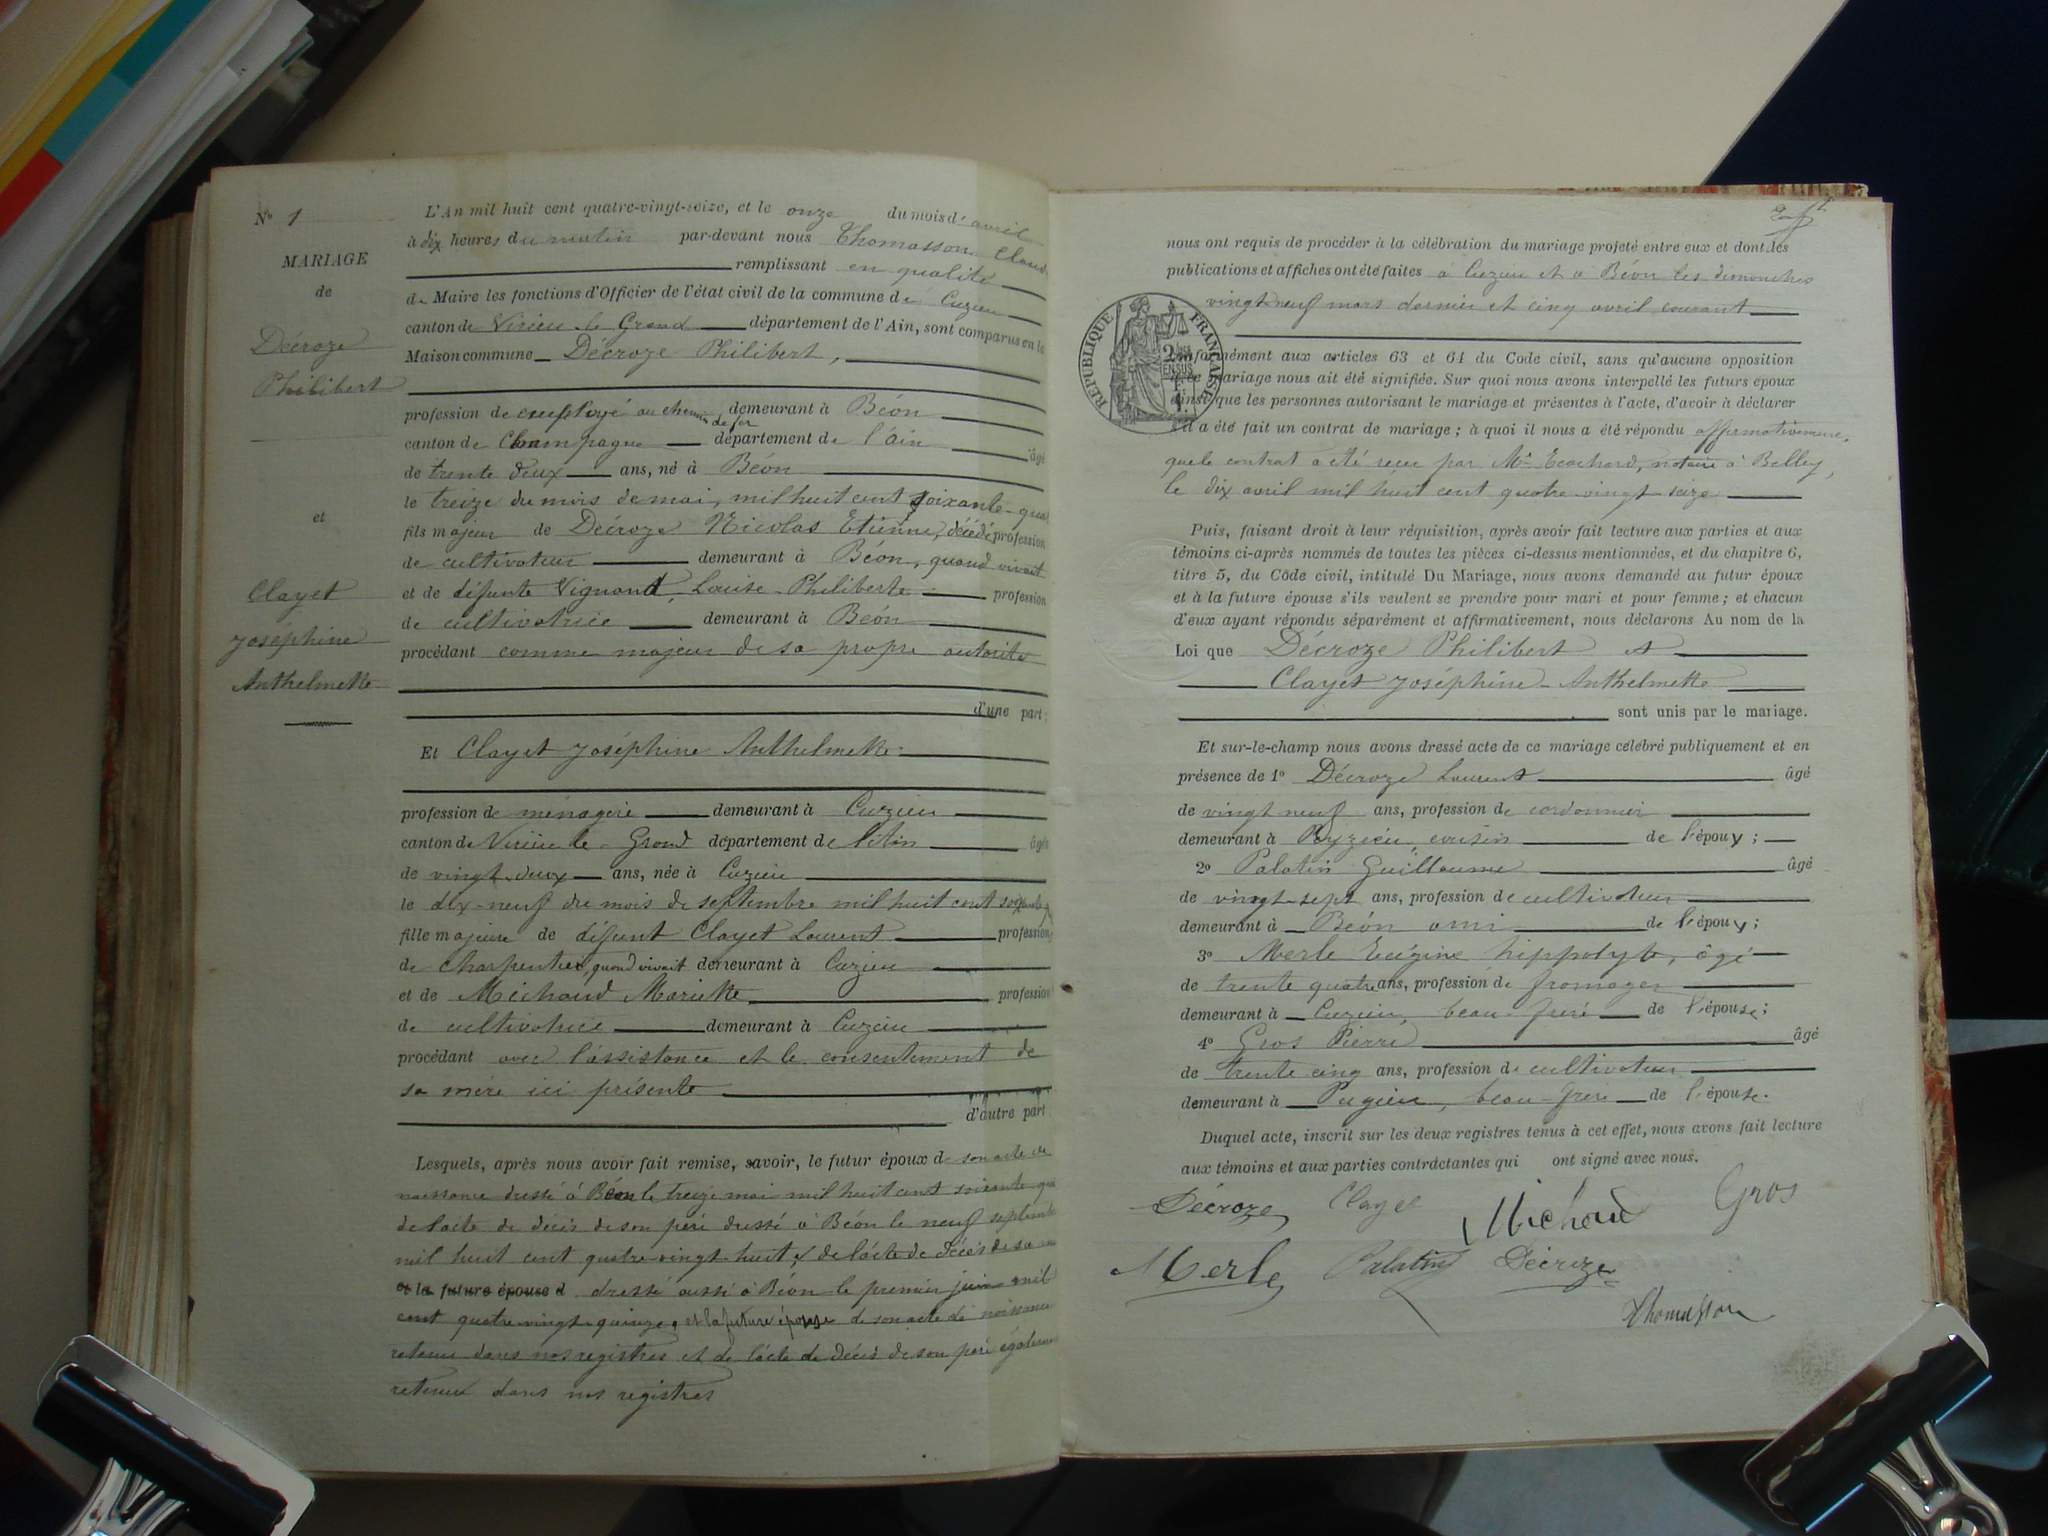 N° 1
MARIAGE
de
Décroze
Philibert
et
Clayet
Joséphine
Anthelmette
L'An mil huit cent quatre-vingt-seize, et le onze du mois d'avril
à dix heures du matin par-devant nous Thomasson Claude
remplissant en qualité
de Maire les fonctions d'Officier de l'état civil de la commune de Cuzieu
canton de Virieu le Grand département de l'Ain, sont comparus en la
Maison commune Décroze Philibert,
profession de employé au chemin de fer demeurant à Béon
canton de Champagne département de l'ain âgé
de trente deux ans, né à Béon
le treize du mois de mai, mil huit cent soixante-qua
fils majeur de Décroze Nicolas Etienne, décédé profession
de cultivateur demeurant à Béon, quand vivait
et de défunte Vignond, Louise Philiberte profession
de cultivatrice demeurant à Béon
procédant comme majeur de sa propre autorité
d'une part;
Et Clayet Joséphine Anthelmette
profession de ménagère demeurant à Cuzieu
canton de Virieu le Grand département de l'Ain âgée
de vingt-deux ans, née à Cuzieu
le dix-neuf du mois de septembre mil huit cent soixante
fille majeure de défunt Clayet Laurent profession
de charpentier, quand vivait demeurant à Cuzieu
et de Michaud Mariette profession
de cultivatrice demeurant à Cuzieu
procédant avec l'assistance et le consentement de
sa mère ici présente
d'autre part
Lesquels, après nous avoir fait remise, savoir, le futur époux de son acte de
naissance dressé à Béon le treize mai mil huit cent soixante qua
de l'acte de décès de son père dressé à Béon le neuf septembre
mil huit cent quatre-vingt huit, & de l'acte de décès de sa
et la future épouse d dressé aussi à Béon le premier juin mil
cent quatre vingt quinze, et la future épouse de son acte de naissance
retenu dans nos registres et de l'acte de décès de son père également
retenu dans nos registres
nous ont requis de procéder à la célébration du mariage projeté entre eux et dont les
publications et affiches ont été faites à Cuzieu et à Béon les dimanches
vingt-neuf mars dernier et cinq avril courant
RÉPUBLIQUE FRANÇAISE
conformément aux articles 63 et 64 du Code civil, sans qu'aucune opposition
à ce mariage nous ait été signifiée. Sur quoi nous avons interpellé les futurs époux
ainsi que les personnes autorisant le mariage et présentes à l'acte, d'avoir à déclarer
s'il a été fait un contrat de mariage; à quoi il nous a été répondu affirmativement,
que le contrat a été reçu par Me notaire à Belley,
le dix avril mil huit cent quatre vingt seize
Puis, faisant droit à leur réquisition, après avoir fait lecture aux parties et aux
témoins ci-après nommés de toutes les pièces ci-dessus mentionnées, et du chapitre 6,
titre 5, du Code civil, intitulé Du Mariage, nous avons demandé au futur époux
et à la future épouse s'ils veulent se prendre pour mari et pour femme; et chacun
d'eux ayant répondu séparément et affirmativement, nous déclarons Au nom de la
Loi que Décroze Philibert et
Clayet Joséphine Anthelmette
sont unis par le mariage.
Et sur-le-champ nous avons dressé acte de ce mariage célébré publiquement et en
présence de 1° Décroze Laurent âgé
de vingt neuf ans, profession de cordonnier
demeurant à Peyzieu, cousin de l'époux;
2° Palatin Guillaume âgé
de vingt-sept ans, profession de cultivateur
demeurant à Béon ami de l'époux;
3° Merle Eugène hippolyte, âgé
de trente quatre ans, profession de fromager
demeurant à Cuzieu, beau-frère de l'épouse;
4° Gros Pierre âgé
de trente cinq ans, profession de cultivateur
demeurant à Pugieu, beau-frère de l'épouse.
Duquel acte, inscrit sur les deux registres tenus à cet effet, nous avons fait lecture
aux témoins et aux parties contractantes qui ont signé avec nous.
Décroze Clayet Michaud Gros
Merle Palatin Décroze
Thomasson